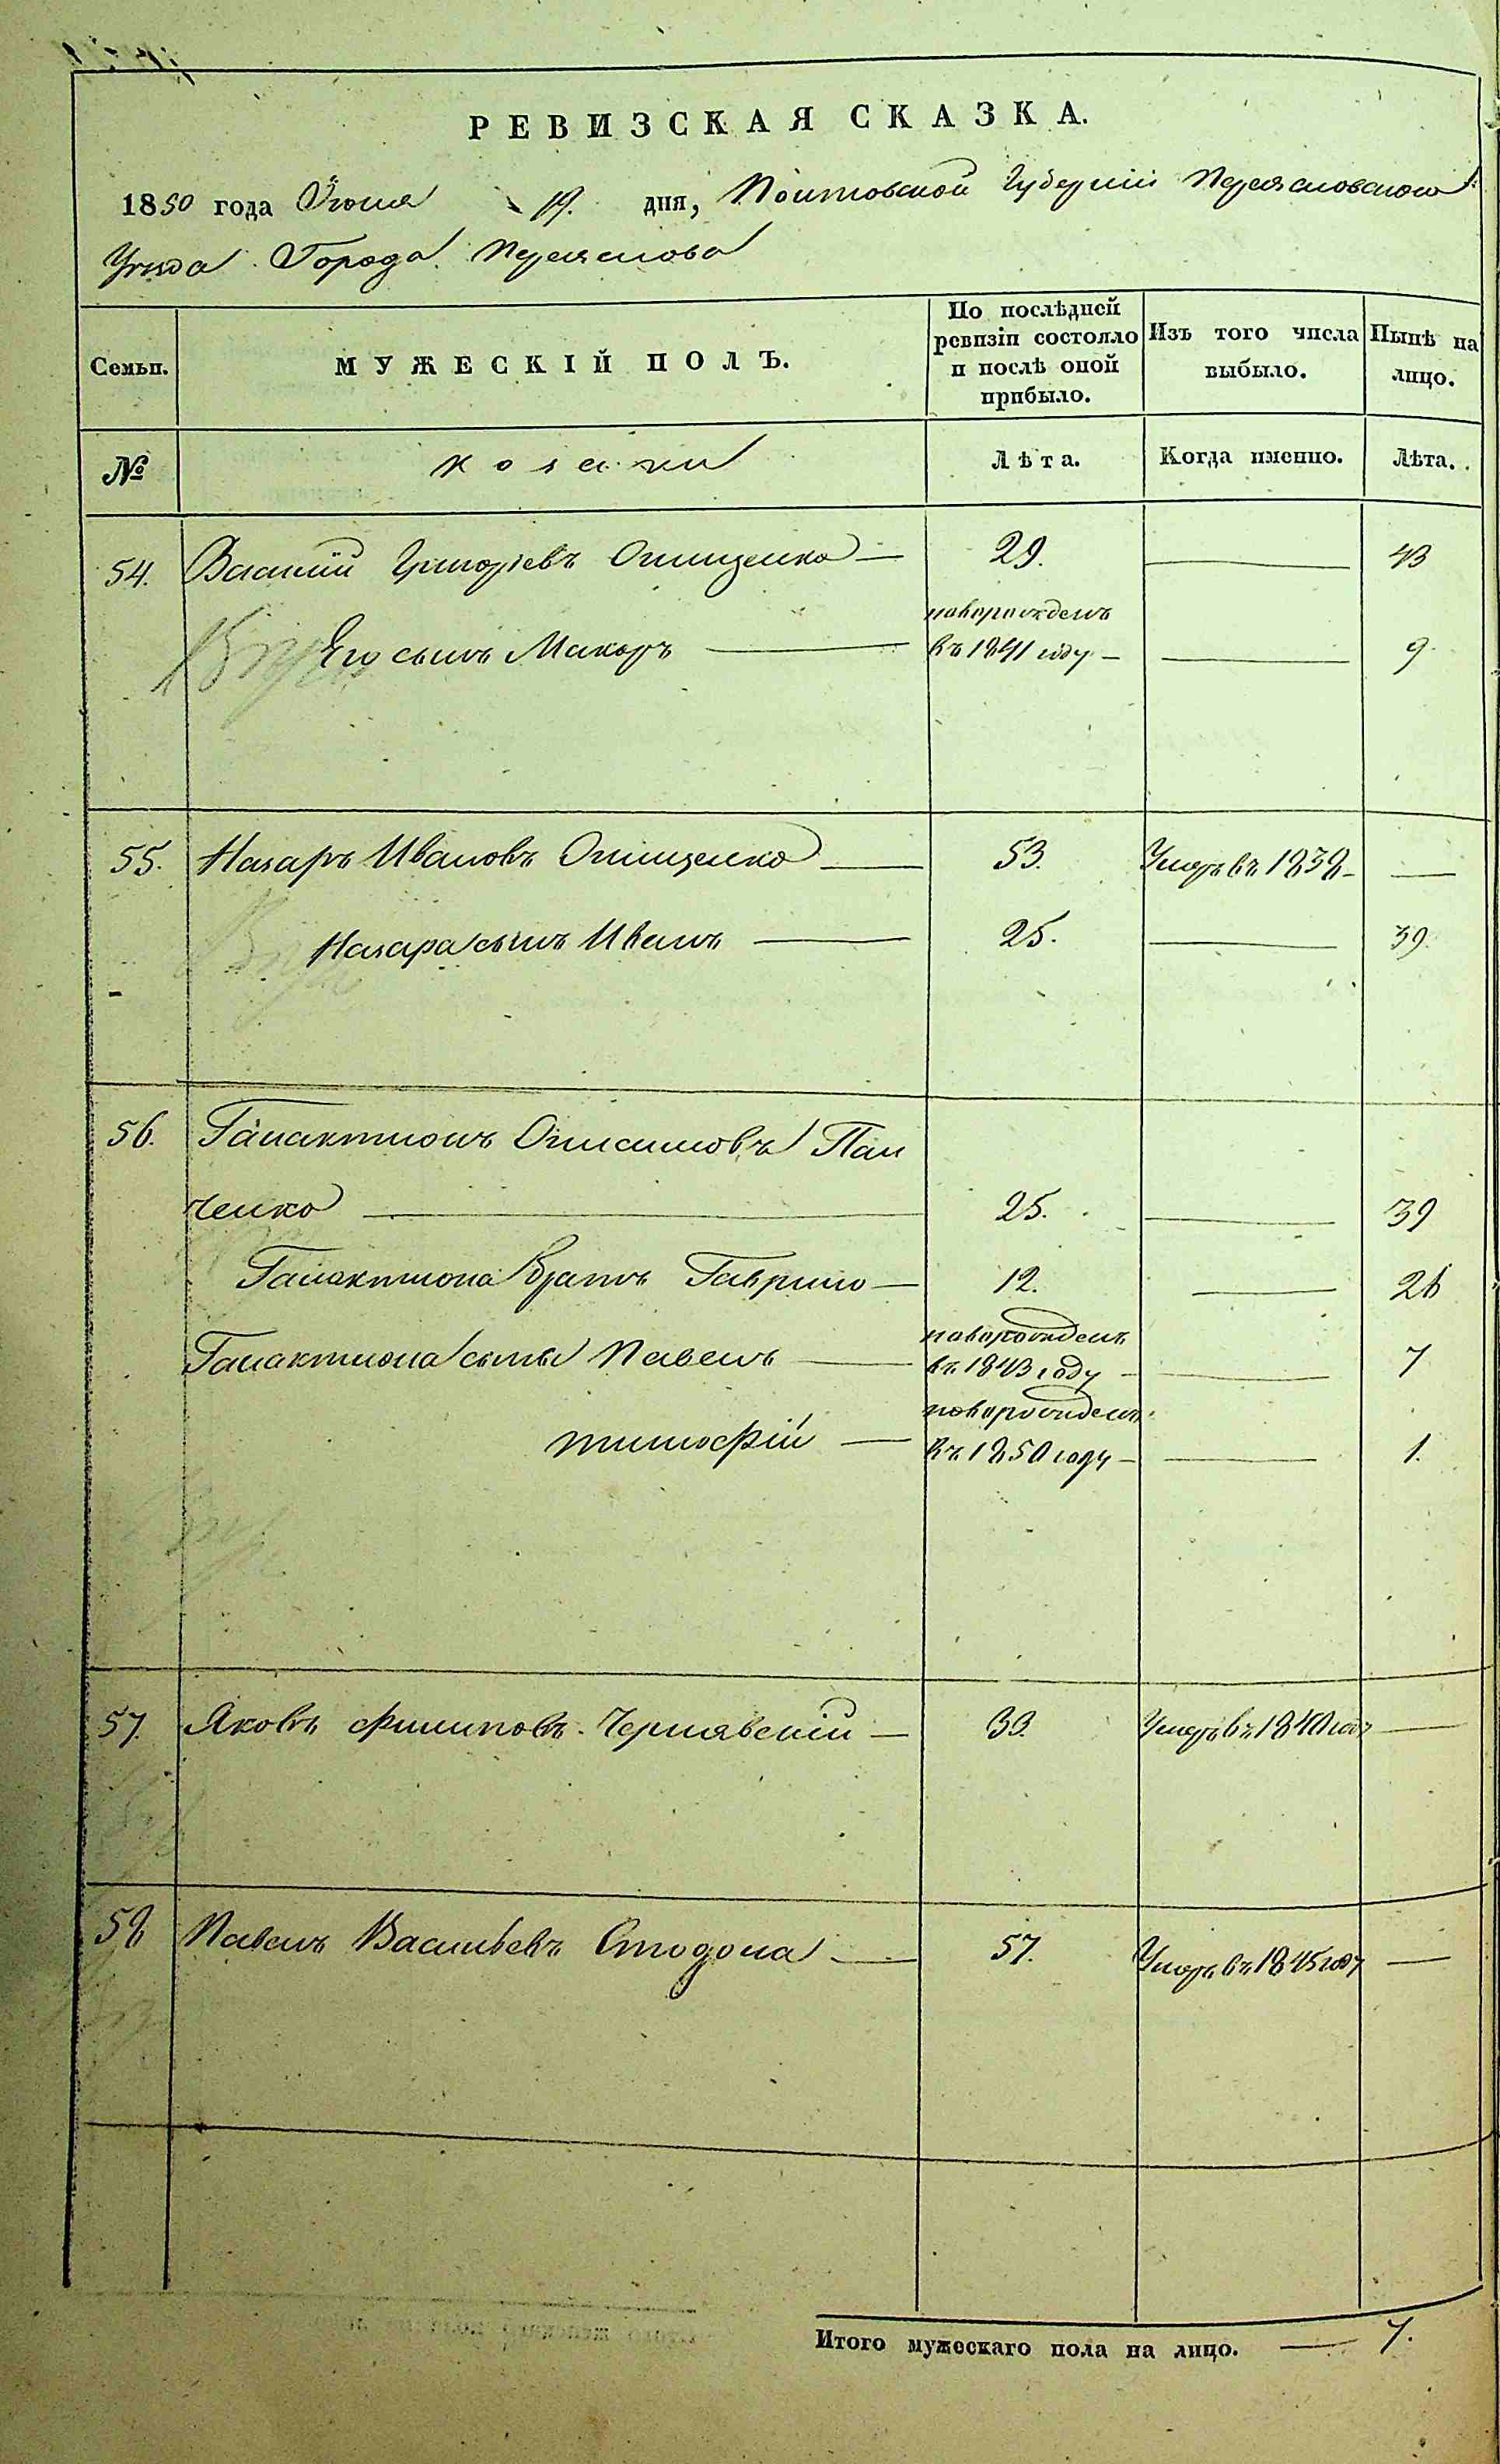 РЕВИЗСКАЯ СКАЗКА.
1850 года Июня 19. дня, Полтовской Губерніи Переясловского
Уезда Города Переяслова
Семьи.
МУЖЕСКІЙ ПОЛЪ.
По послѣдней ревизіи состояло и послѣ оной прибыло.
Изъ того числа выбыло.
Нынѣ на лицо.
№
козаки
Лѣта.
Когда именно.
Лѣта.
54. Василій Григоріевъ Онищенко — 29. — 43
новорожденъ
Его сынъ Макаръ — въ 1841 году — — 9
55. Назаръ Ивановъ Онищенко — 53. Умеръ въ 1838 — —
Назара сынъ Иванъ — 25. — 39.
56. Галактионъ Онисимовъ Пан
ченко — 25. — 39
Галактиона братъ Гаврило — 12. — 26
новорожденъ
Галактиона сыны Павелъ — въ 1843 году — — 7
новорожденъ
тимофій — въ 1850 году — — 1.
57. Яковъ Филиповъ Чернявскій — 33. Умеръ въ 1840 году —
58 Павелъ Васильевъ Стодола — 57. Умеръ въ 1845 году —
Итого мужескаго пола на лицо. — 7.